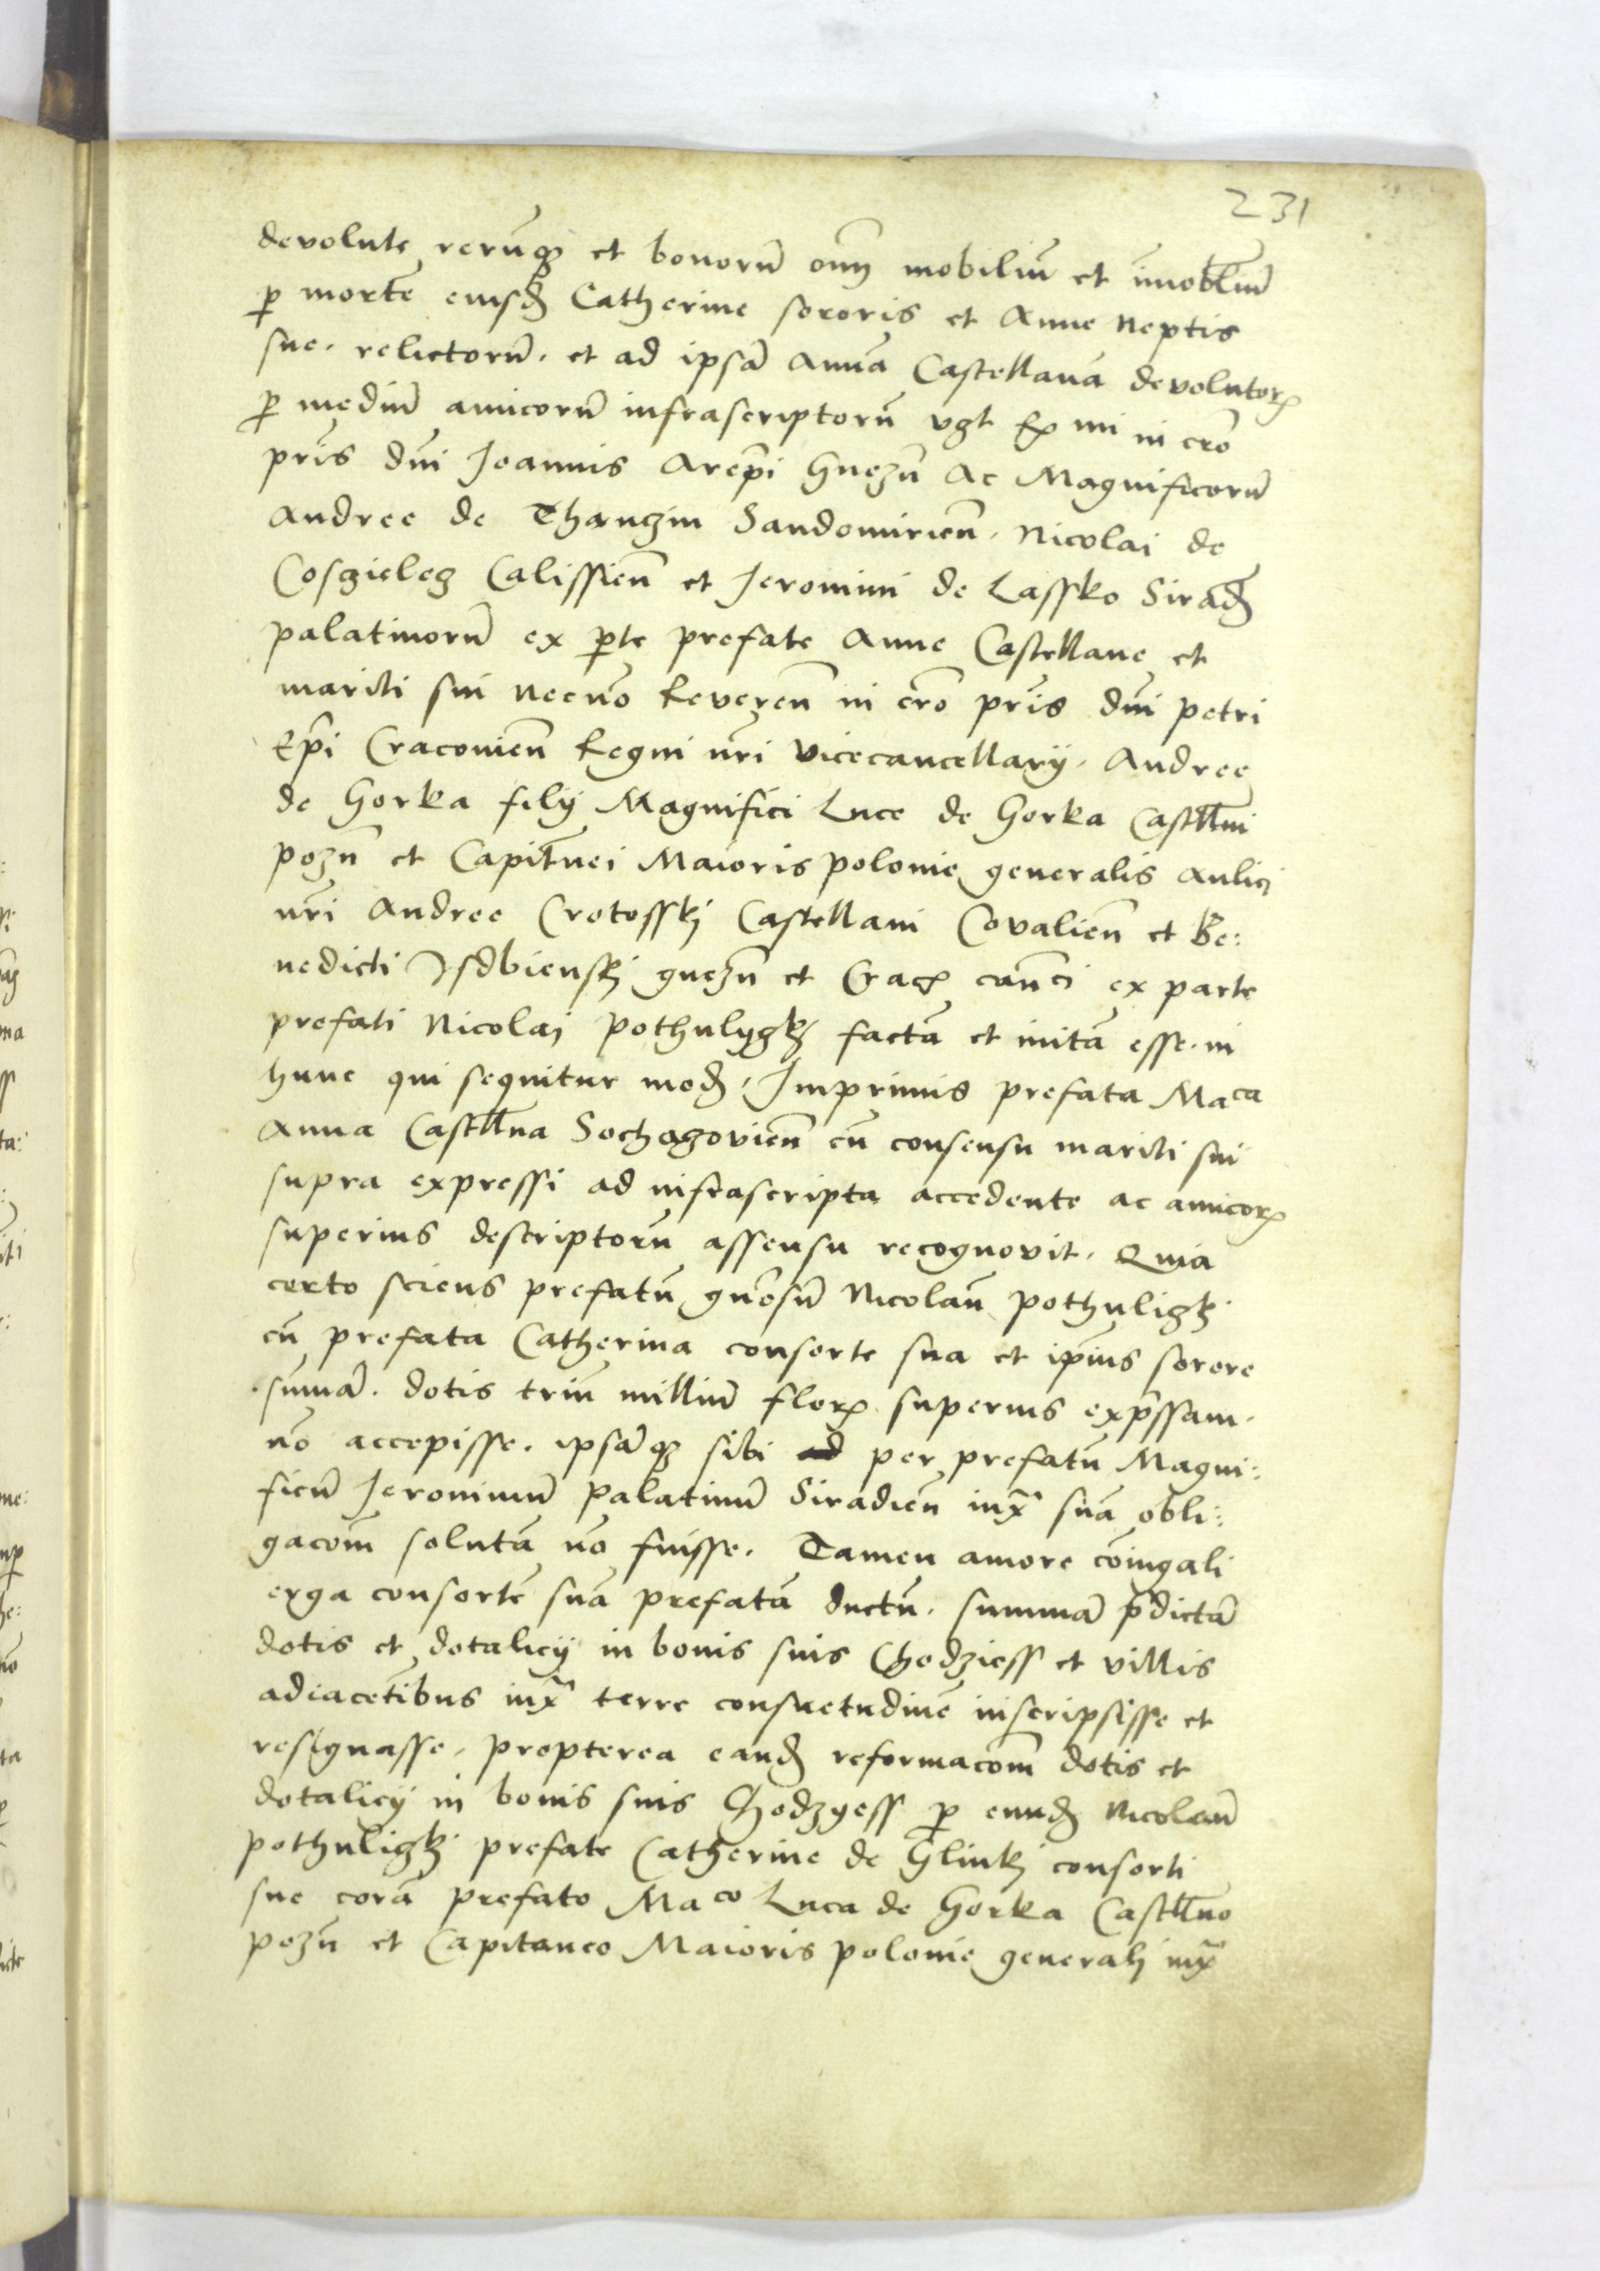 231
devolute rerūq₃ et bonorū oīm mobiliū et īmobliū
ꝑ mortē eiusđ Catherine sororis et Anne Neptis
sue. relictorū. et ad ipsā Annā Castellanā devolutoꝝ
ꝑ mediū amicorū infrascriptorū vꝫt Rmi in cro
prīs dnī Joannis Arepī Gnezn̄ Ac Magnificorū
Andree de Thanczin Sandomirien̄. Nicolai de
Cosczielecz Calissien̄ et Jeronimi de Lassko Sirađ
palatinorū ex ꝑte prefate Anne Castellane et
mariti sui Necnō Reveren̄ in cro prīs dnī petri
Epī Cracovien̄ Regni nrī vicecancellarij. Andree
de Gorka filij Magnifici Luce de Gorka Castllni
pozn̄ et Capitnei Maioris polonie generalis Aulici
nrī Andree Crotosskj Castellani Covalien̄ et Be:
nedicti Isdbienskj gnezn̄ et Crac canci ex parte
prefati Nicolaj pothulyczkj factā et initā esse. in
hunc qui sequitur mođ. Imprimis prefata Maca
Anna Castllna Sochaczovien̄ cū consensu mariti sui
supra expressi ad infrascripta accedente ac amicoꝝ
superius descriptorū assensu recognovit. Quia
certo sciens prefatū gnosū Nicolaū pothuliczkj
cū prefata Catherina consorte sua et ipīus sorore
.sūmā. dotis triū milliū floꝝ superius exprssam.
nō accepisse. ipsāq₃ sibi per prefatū Magni:
ficū Jeronimū palatinū Siradien̄ iuxᵃ suā obli:
gacoīm solutā nō fuisse. Tamen amore cōiugali
erga consortē suā prefatā ductū. summā p̄dictā
dotis et dotalicij in bonis suis Chodziess et villis
adiacētibus iuxᵃ terre consuetudinē inscripsisse et
resignasse. propterea eanđ reformacoīm dotis et
dotalicij in bonis suis Chodzyess ꝑ eunđ Nicolaū
pothuliczkj prefate Catherine de Glinkj consorti
sue corā prefato Maco Luca de Gorka Castllno
pozn̄ et Capitaneo Maioris polonie generalj iuxᵃ